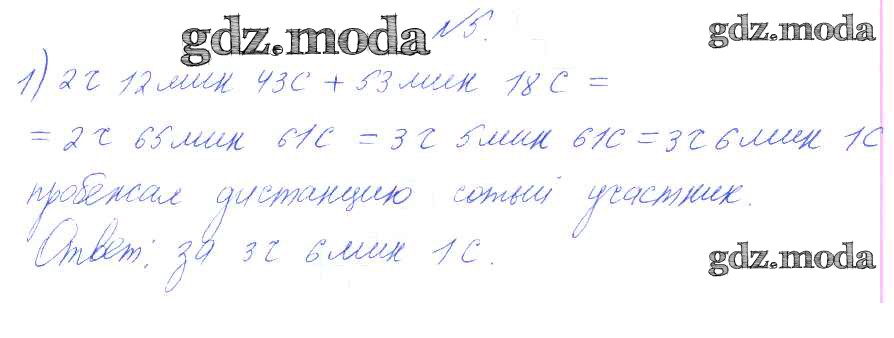 gdz.moda №5. gdz.moda
1) 2 ч 12 мин 43 с + 53 мин 18 с =
= 2 ч 65 мин 61 с = 3 ч 5 мин 61 с = 3 ч 6 мин 1 с
пробежал дистанцию сотый участник.
Ответ: за 3 ч 6 мин 1 с.
gdz.moda